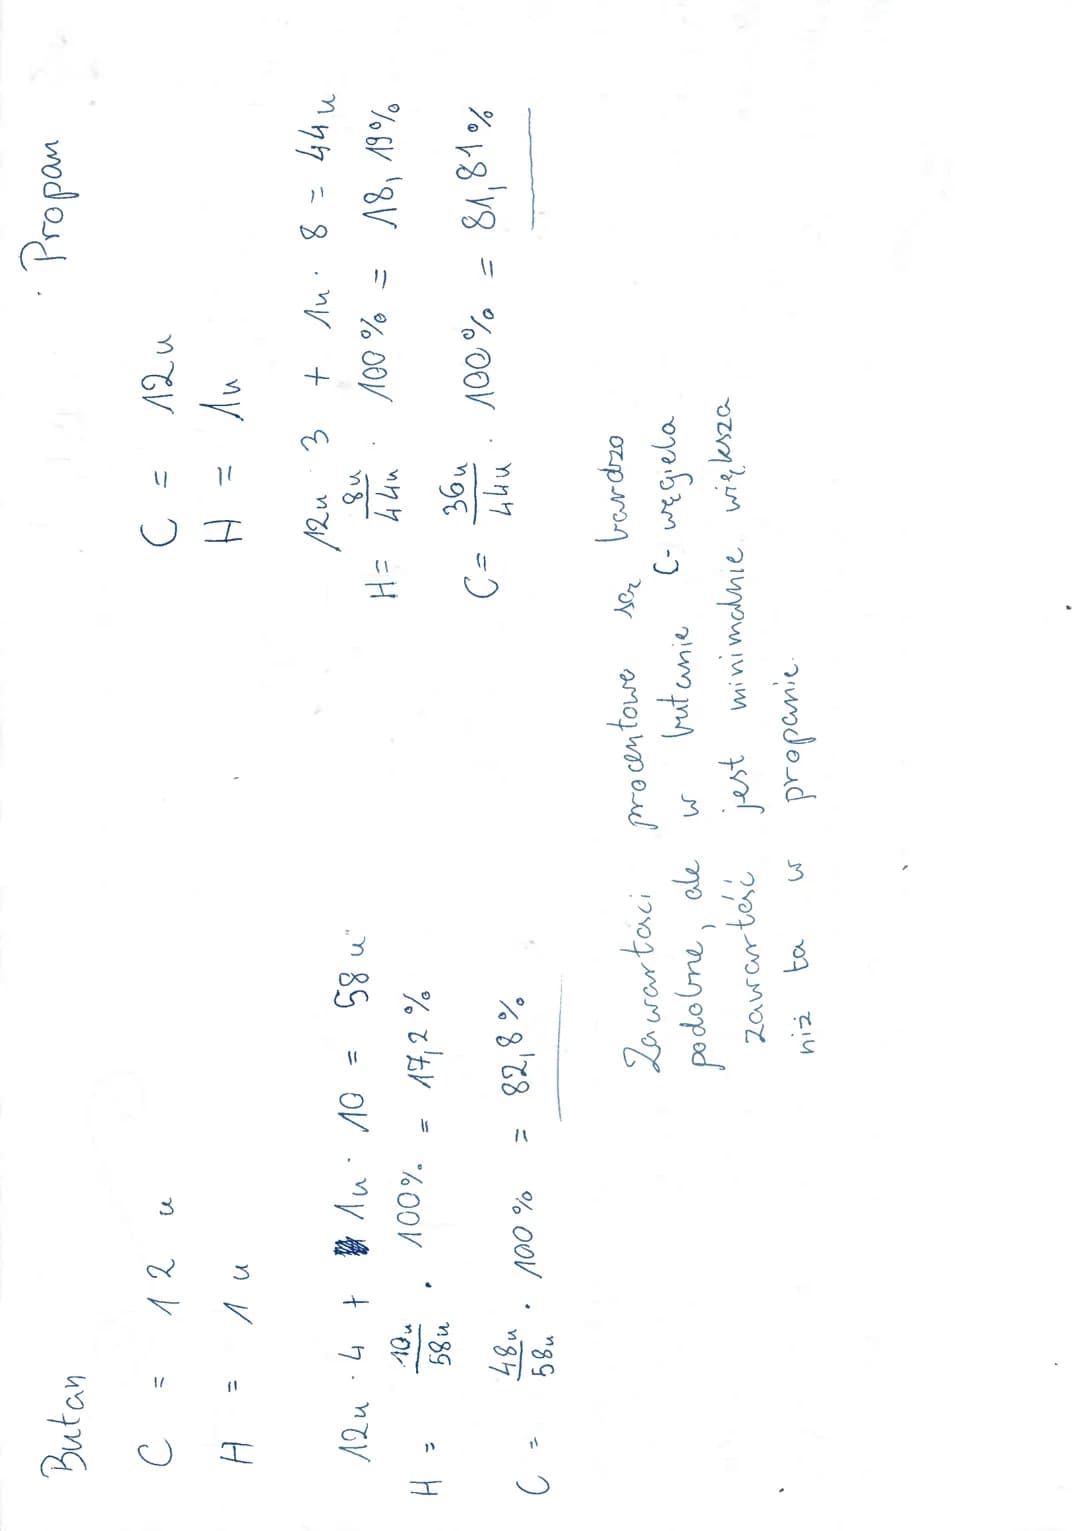 Butan
C = 12 u
H = 1 u
12u · 4 + 1u · 10 = 58 u
H = 10u/58u · 100% = 17,2%
C = 48u/58u · 100% = 82,8%
Propan
C = 12u
H = 1u
12u · 3 + 1u · 8 = 44u
H = 8u/44u · 100% = 18,19%
C = 36u/44u · 100% = 81,81%
Zawartości procentowe są bardzo
podobne, ale w butanie C- węgiela
zawartość jest minimalnie większa
niż ta w propanie.